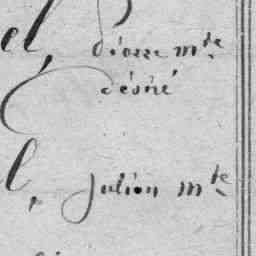 el, Pierre mte
désiré
l, Julien mte